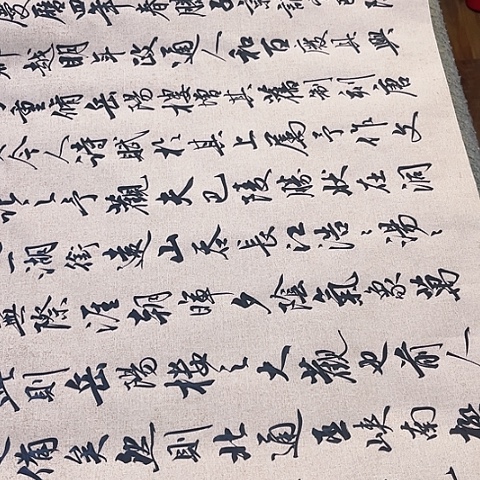 慶曆四年春滕子京謫
越明年政通人和百廢具興
重脩岳陽樓增其舊制刻唐
今人詩賦於其上屬予作文
之予觀夫巴陵勝狀在洞
湖銜遠山吞長江浩〻湯〻
無際涯朝暉夕陰氣象萬
此則岳陽樓之大觀也前人
備矣然則北通巫峽南極